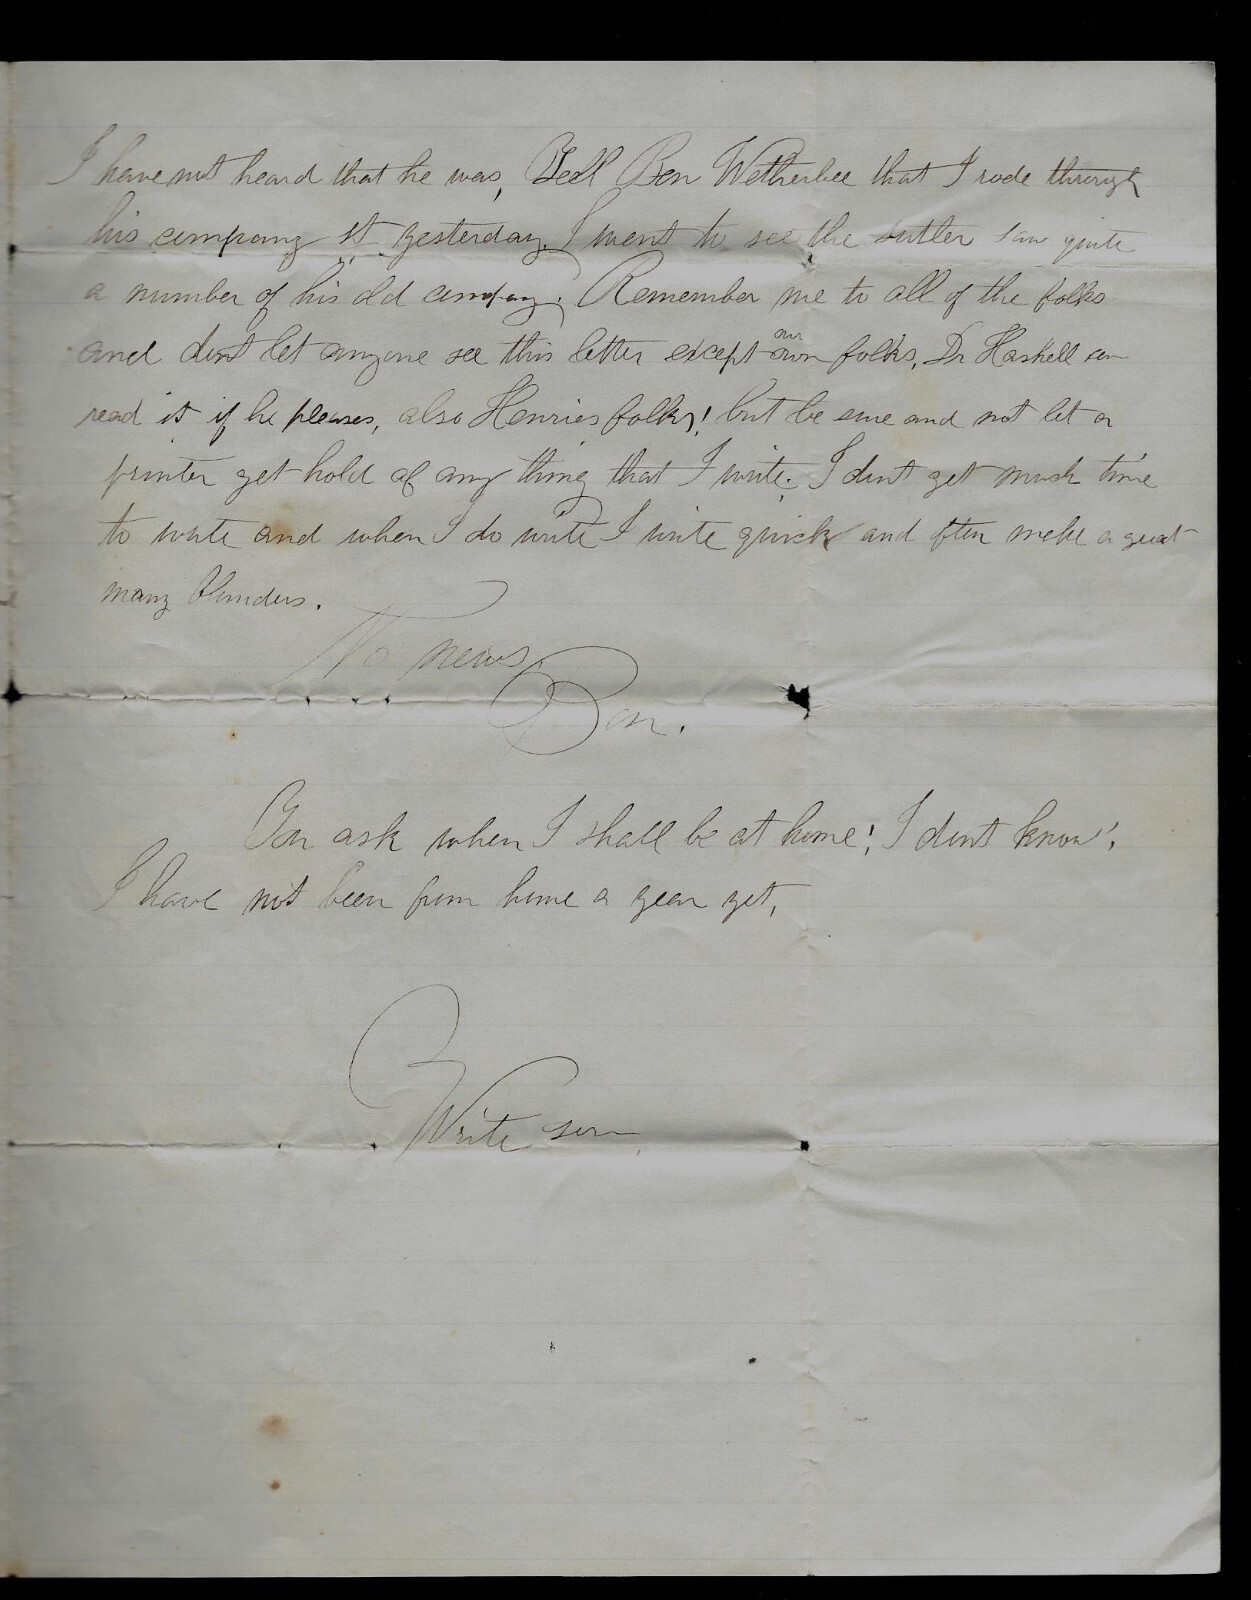 I have not heard that he was, Tell Ben Wetherbee that I rode through
his company St yesterday. I went to see the sutler saw quite
a number of his old company. Remember me to all of the folks
and dont let anyone see this letter except our own folks, Dr Haskell can
read it if he pleases, also Henries folks! but be sure and not let a
printer get hold of any thing that I write. I dont get much time
to write and when I do write I write quick and often make a great
many blunders.
No news.
Ben.
You ask when I shall be at home! I dont know!.
I have not been from home a year yet,
Write soon